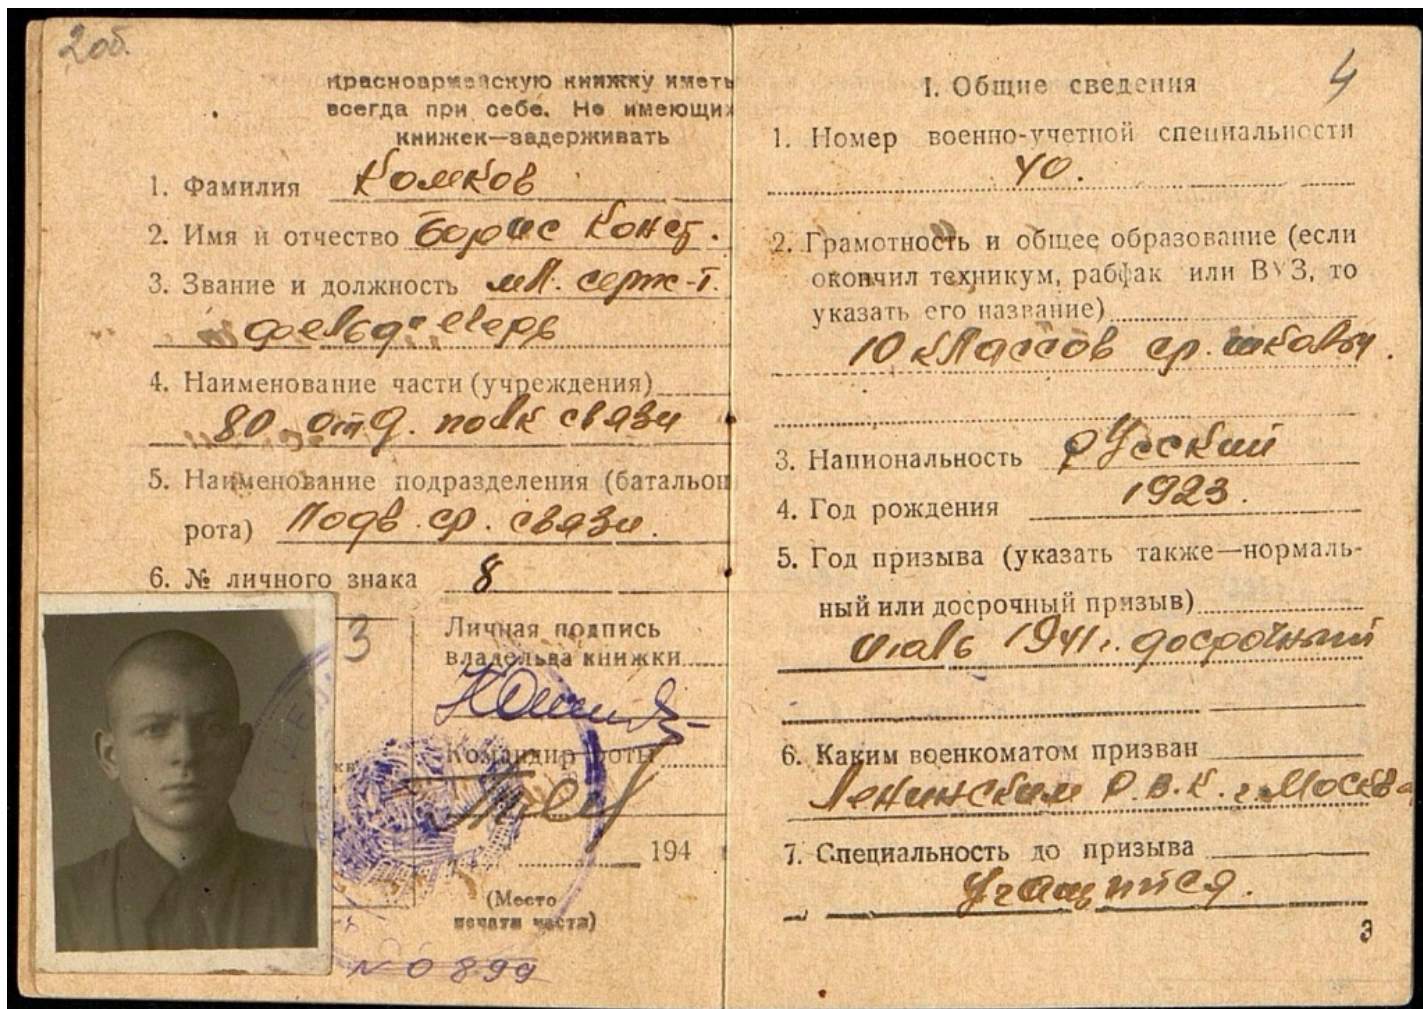 2об.
Красноармейскую книжку иметь
всегда при себе. Не имеющих
книжек—задерживать
1. Фамилия Комков
2. Имя и отчество Борис Конст.
3. Звание и должность мл. серж-т.
фельдшер
4. Наименование части (учреждения)
80 отд. полк связи
5. Наименование подразделения (батальон
рота) Подв. ср. связи.
6. № личного знака 8
3
Личная подпись
владельца книжки
Командир роты
194
(Место
печати части)
N 0899
4
I. Общие сведения
1. Номер военно-учетной специальности
40.
2. Грамотность и общее образование (если
окончил техникум, рабфак или ВУЗ, то
указать его название)
10 классов ср. школы.
3. Национальность русский
4. Год рождения 1923.
5. Год призыва (указать также—нормаль-
ный или досрочный призыв)
1941 г. досрочный
6. Каким военкоматом призван
Ленинским Р.В.К. г. Москва
7. Специальность до призыва
учащийся.
3